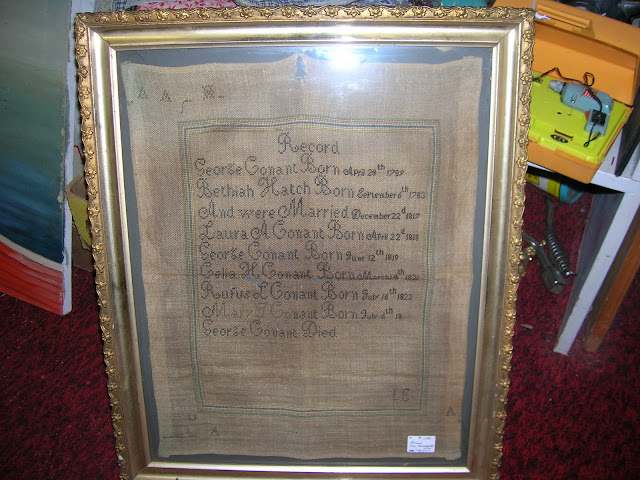 Record
George Conant Born April 28th 1789
Bethiah Hatch Born September 6th 1783
And were Married December 22d 1817
Laura A Conant Born April 22d 1818
George Conant Born June 12th 1819
Celia H Conant Born March 4th 1821
Rufus L Conant Born July 16th 1823
Mary Conant Born July 6th 18
George Conant Died